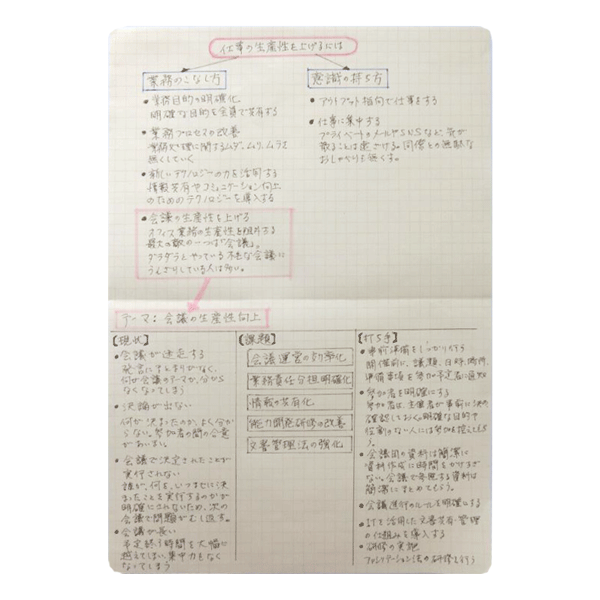 仕事の生産性を上げるには
業務のこなし方
・業務目的の明確化
明確な目的を全員で共有する
・業務プロセスの改善
業務処理に関するムダ、ムリ、ムラを
無くしていく
・新しいテクノロジーの力を活用する
情報共有やコミュニケーション向上
のためのテクノロジーを導入する
・会議の生産性を上げる
オフィス業務の生産性を阻害する
最大の敵の一つは"会議"。
ダラダラとやっている不毛な会議に
うんざりしている人は多い。
意識の持ち方
・アウトプット指向で仕事をする
・仕事に集中する
プライベートのメールやSNSなど、気が
散ることは遠ざける。同僚との無駄な
おしゃべりも無くす。
テーマ：会議の生産性向上
【現状】
・会議が迷走する
発言にまとまりがなく、
何が会議のテーマか、分から
なくなってしまう
・決論が出ない
何が決まったのか、よく分か
らない。参加者の間の合意
があいまい。
・会議で決定されたことが
実行されない
誰が、何を、いつまでに決
まったことを実行するのかが
明確にされないため、次の
会議で問題がむし返す。
・会議が長い
予定終了時間を大幅に
越えてしまい、集中力もなく
なってしまう
【課題】
会議運営の効率化
業務責任分担明確化
情報の共有化
能力開発研修の改善
文書管理法の強化
【打ち手】
・事前準備をしっかり行う
開催前に、議題、日時、場所、
準備事項を参加予定者に通知
・参加者を明確にする
参加者は、主催者が事前に決め
確認しておく。明確な目的や
役割のない人には参加を控えてもら
う。
・会議用の資料は簡潔に
資料作成に時間をかけすぎ
ない。会議で使用する資料は
簡潔にまとめてもらう。
・会議進行のルールを明確にする
・ITを活用した文書共有・管理
の仕組みを導入する
・研修の実施
ファシリテーション法の研修を行う